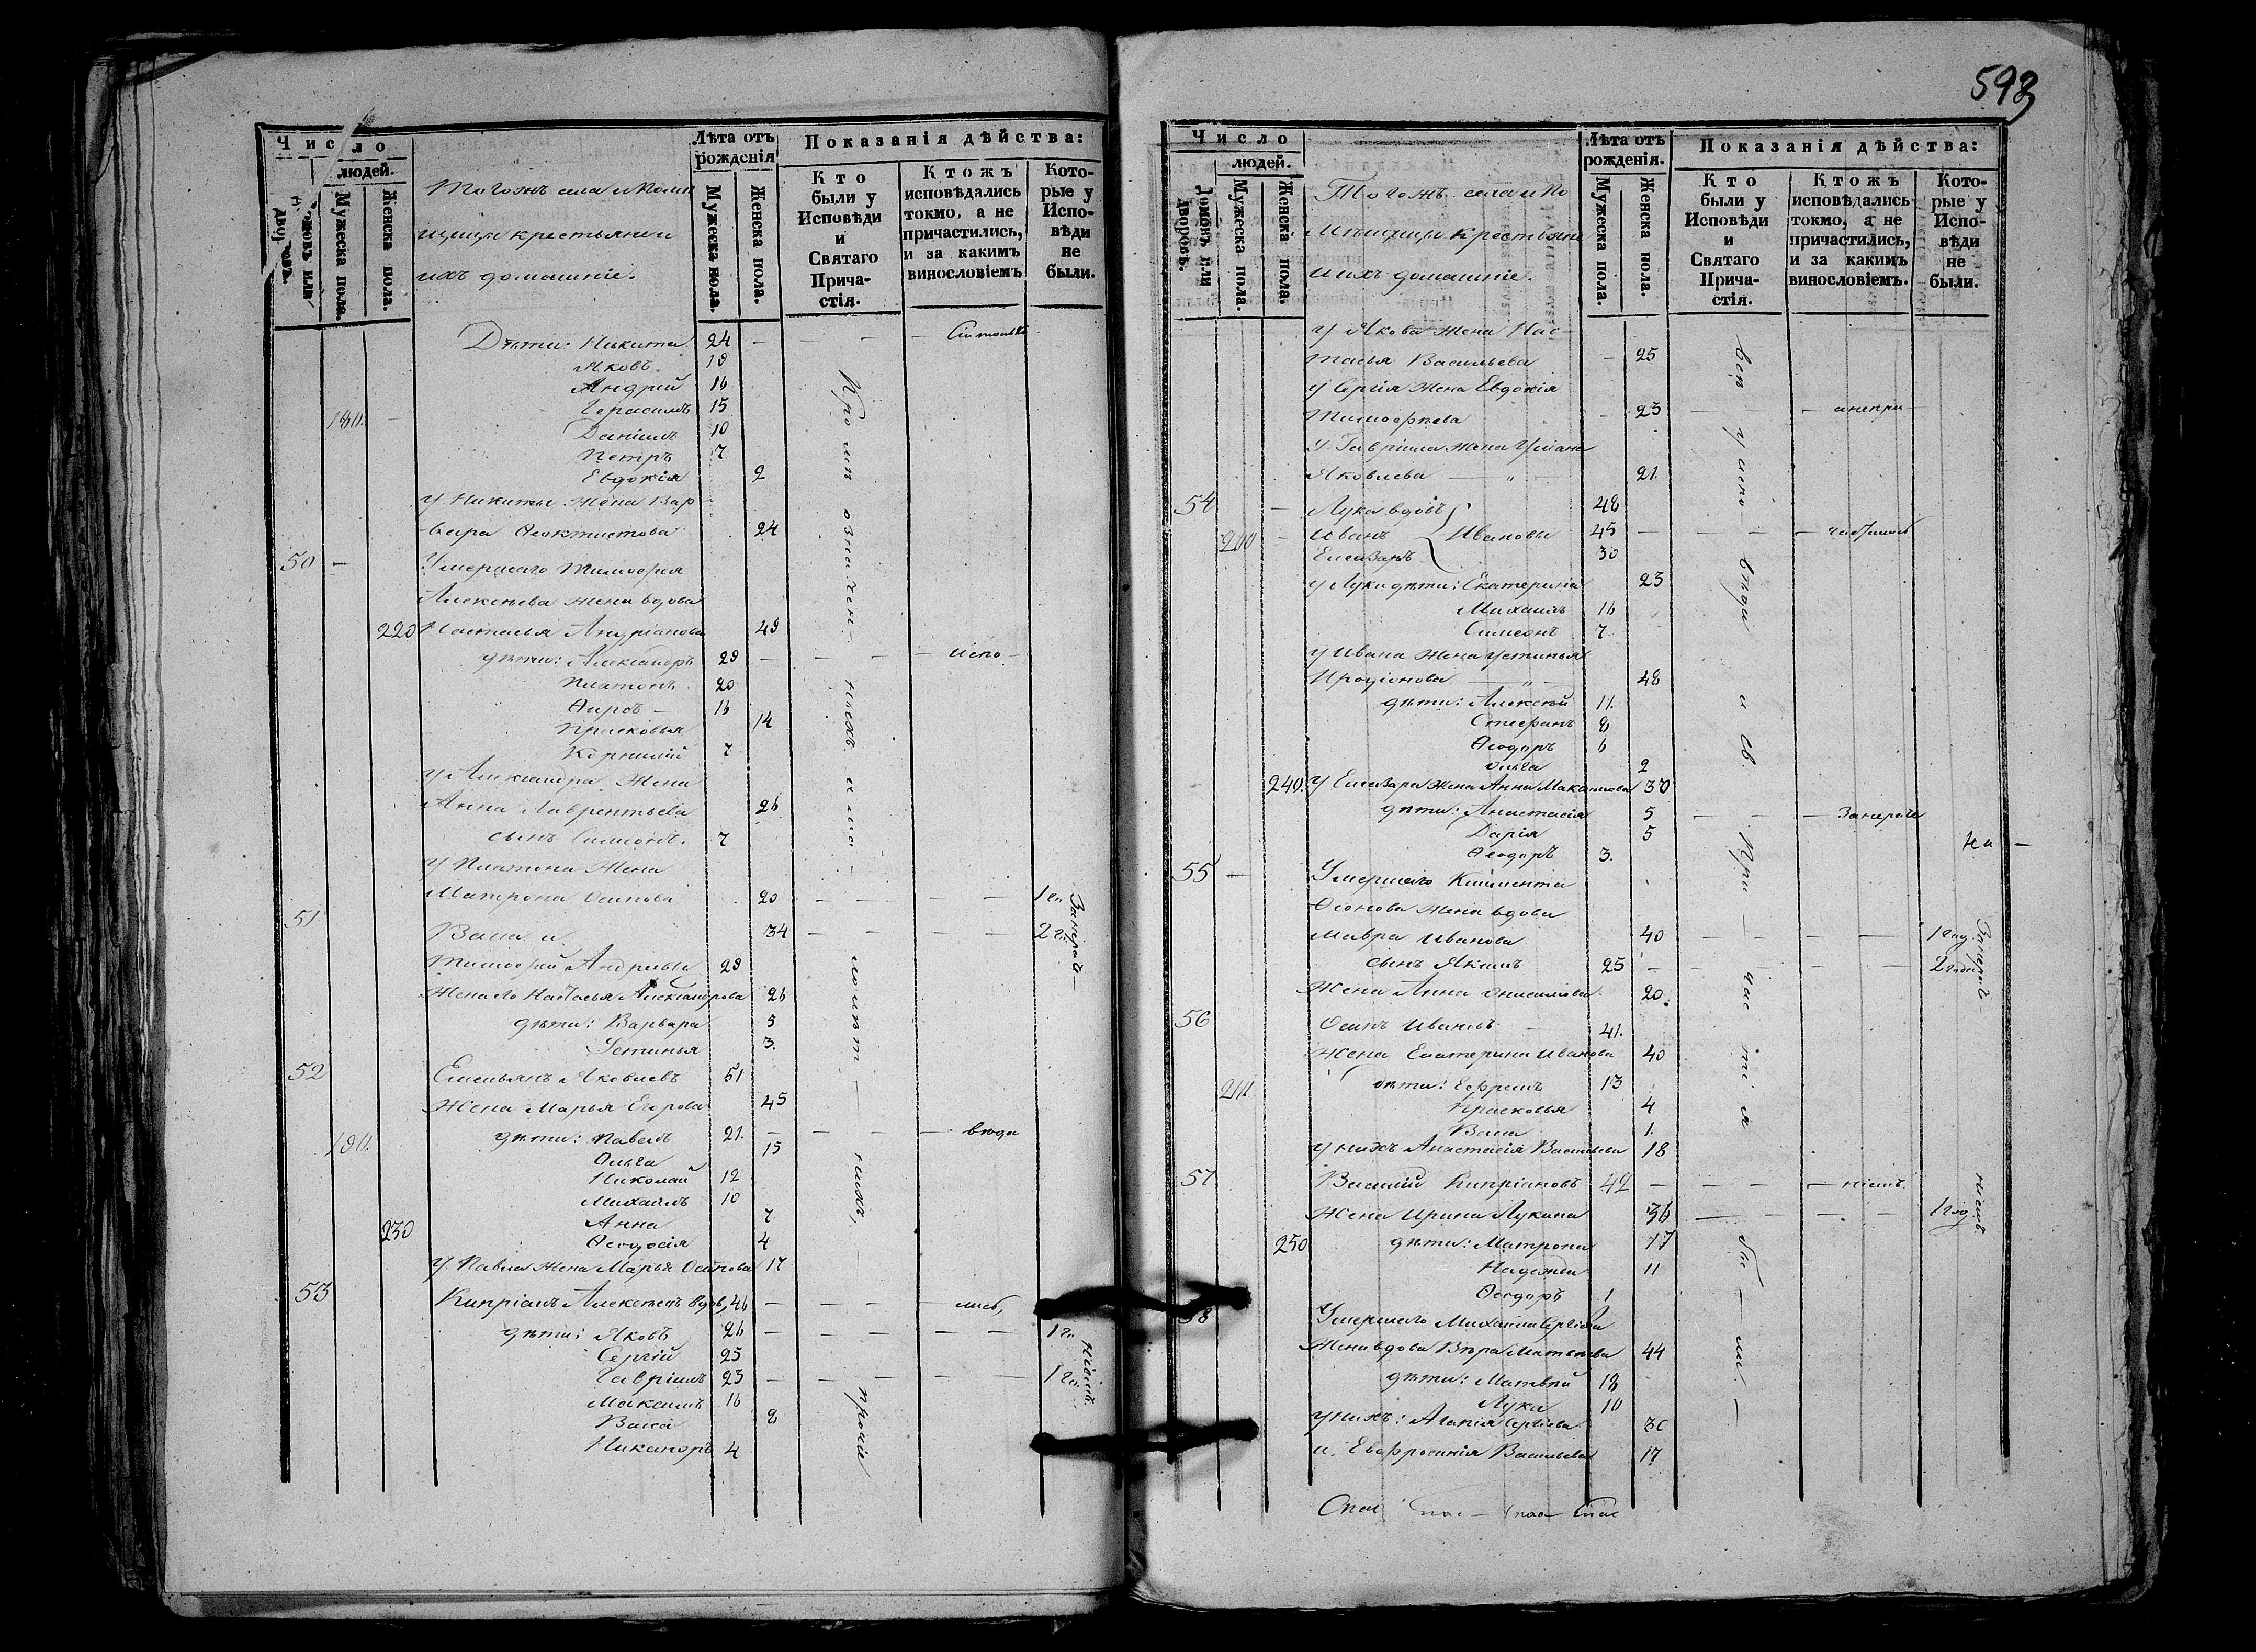 598
Число
людей.
Домовъ или дворовъ.
Мужеска пола.
Женска пола.
Тогожъ села и Помѣ
щицы крестьяне и
ихъ домашніе.
Лѣта отъ рожденія
Мужеска пола.
Женска пола.
Показанія дѣйства:
Кто были у Исповѣди и Святаго Причастія.
Ктожъ исповѣдались токмо, а не причастились, и за какимъ винословіемъ
Которые у Исповѣди не были.
Дѣти: Никита 24
Яковъ 19
Андрей 16
180. Герасимъ 15
Даніилъ 10
Петръ 7
Евдокія 2
У Никиты жена Вар
вара Ѳеоктистова 24
50 Умершаго Тимоѳея
Алексѣева жена вдова
220 Настасья Андріанова 49
дѣти: Александръ 29 Испо
Платонъ 20
Ѳирсъ 16
Прасковья 14
Корнилій 7
У Александра жена
Анна Лаврентьева 26
сынъ Симеонъ. 7
У Платона жена
Матрона Осипова 20 1 г.
51 Васса и 34 2 г.
Тимоѳей Андреевы 29
Жена его Настасья Александрова 26
дѣти: Варвара 5
Устинья 3.
52 Емельянъ Яковлевъ 51
Жена Марья Егорова 45
190. дѣти: Павелъ 21.
Ольга 15
Николай 12
Михаилъ 10
Анна 7
230 Ѳеодосія 4
У Павла жена Марья Осипова 17
53 Кипріанъ Алексѣевъ вдов, 46 лись,
дѣти: Яковъ 26 1 г.
Сергій 25
Гавріилъ 23 1 г.
Максимъ 16
Васса 8
Никаноръ 4
Кромѣ означен-
ныхъ
нихъ,
прочіе
Занерач-
ніемъ.
Число
людей.
Домовъ или дворовъ.
Мужеска пола.
Женска пола.
Тогожъ села и По
мѣщицы крестьяне
и ихъ домашніе.
Лѣта отъ рожденія.
Мужеска пола.
Женска пола.
Показанія дѣйства:
Кто были у Исповѣди и Святаго Причастія.
Ктожъ исповѣдались токмо, а не причастились, и за какимъ винословіемъ.
Которые у Исповѣди не были.
У Якова жена Нас-
тасья Васильева 25
У Сергія жена Евдокія
Тимоѳеева 23 анепри
У Гавріила жена Ульяна
Яковлева 21.
54 Лука вдовъ 48
200 Иванъ Ивановы 45 частились
Елеазаръ 30
У Луки дѣти: Екатерина 23
Михаилъ 16
Симеонъ 7.
У Ивана жена Устинья
Иродіонова 48
дѣти: Алексѣй 11.
Стефанъ 8
Ѳеодоръ 6
Ольга 2
240. У Елеазара жена Анна Максимова 30
дѣти: Анастасія 5 Занераче
Дарія 5
Ѳеодоръ 3.
55 Умершаго Климента
жена вдова
Мавра Иванова 40 1 год.
сынъ Якимъ 25 2 года
Жена Анна Онисимова 20.
56 Осипъ Ивановъ 41.
Жена Екатерина Иванова 40
210. дѣти: Ефремъ 13
Прасковья 4
Васса 1.
У нихъ Анастасія Васильева 18
57 Василій Кипріановъ 42 ніемъ.
Жена Ирина Лукина 36 1 год.
250 дѣти: Матрона 17
Надежда 11
Ѳеодоръ 1
58 Умершаго Михаила Сергѣева
Жена вдова Вѣра Матвѣева 44
дѣти: Матвѣй 18
Лука 10
У нихъ: Агапія Сергѣева 30
и Евфросинія Васильева 17
всѣ у испо-
вѣди и св.
При-
час
тія
бы-
ли.
Занерач-
ніемъ.